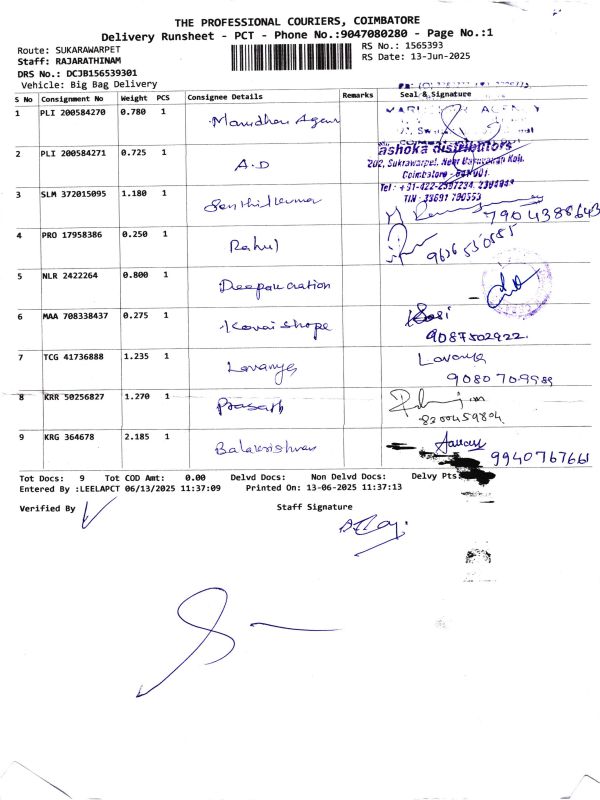 THE PROFESSIONAL COURIERS, COIMBATORE
Delivery Runsheet - PCT - Phone No.:9047080280 - Page No.:1
Route: SUKARAWARPET
RS No.: 1565393
Staff: RAJARATHINAM
RS Date: 13-Jun-2025
DRS No.: DCJB156539301
Vehicle: Big Bag Delivery
S No Consignment No Weight PCS Consignee Details Remarks Seal & Signature
1 PLI 200584270 0.780 1 Manidhari Agen
AGENCY
2 PLI 200584271 0.725 1 A.D
ashoka distributors
202, Sukrawarpet, Near
Coimbatore - 641 001.
Tel : +91-422-2397234, 2394849
3 SLM 372015095 1.180 1 Senthilkumar
7904388643
4 PRO 17958386 0.250 1 Rahul
9626550885
5 NLR 2422264 0.800 1 Deepam creation
6 MAA 708338437 0.275 1 Kovai shope
9087502922.
7 TCG 41736888 1.235 1 Lavanya
Lavanya
9080709989
8 KRR 50256827 1.270 1 Prasath
8200459804
9 KRG 364678 2.185 1 Balakrishnan
9940767661
Tot Docs: 9 Tot COD Amt: 0.00 Delvd Docs: Non Delvd Docs: Delvy Pts:
Entered By :LEELAPCT 06/13/2025 11:37:09 Printed On: 13-06-2025 11:37:13
Verified By
Staff Signature